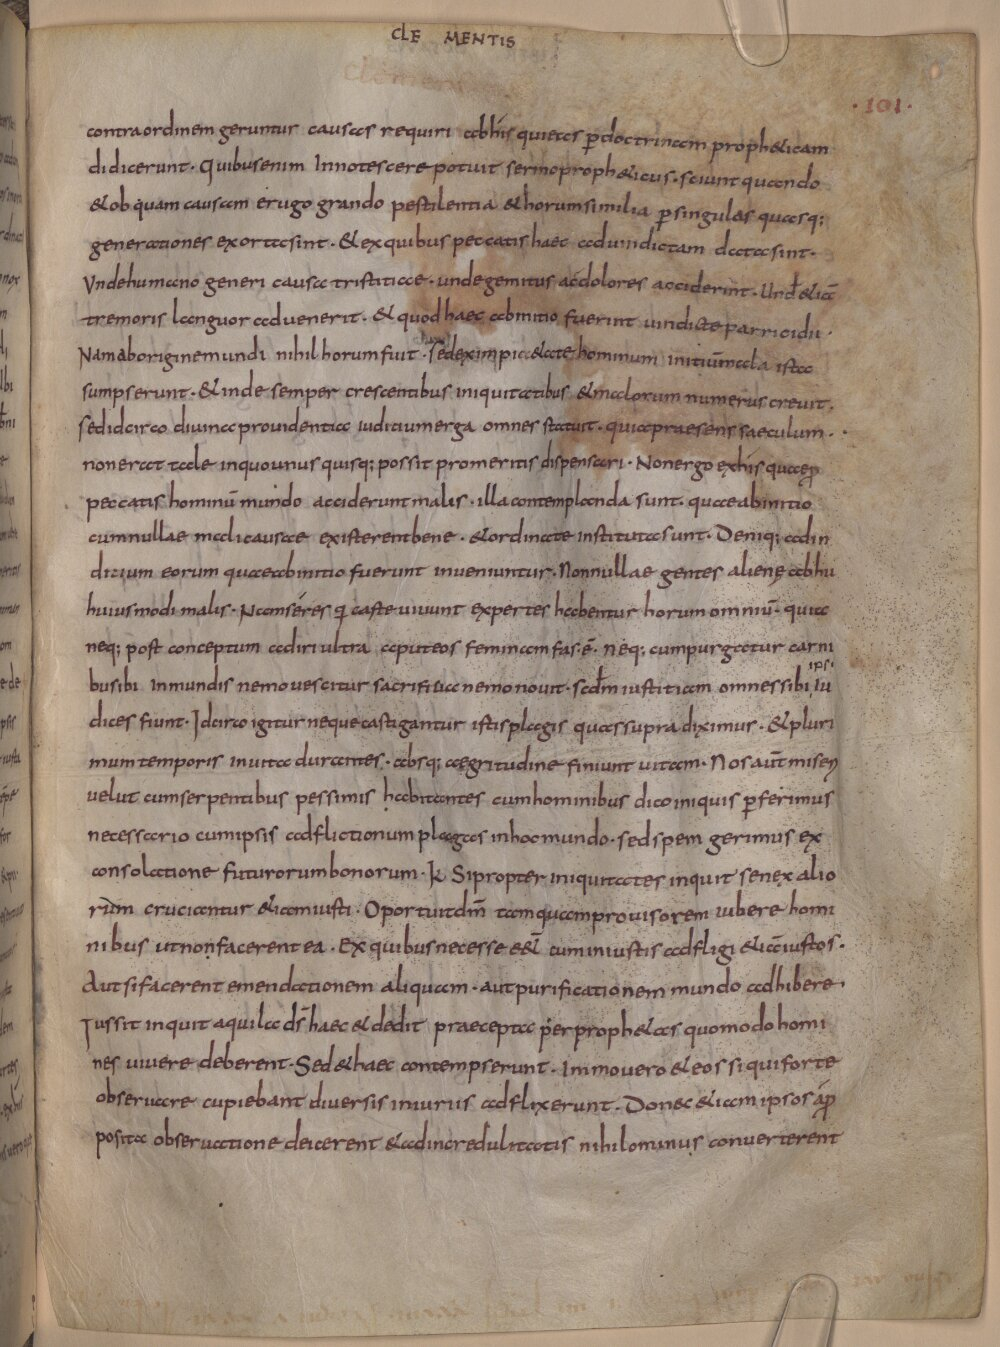 CLE MENTIS
· 101 ·
contra ordinem geruntur causas requiri ab his quieas ꝑ doctrinam prophęticam
didicerunt · Quibus enim Innotescere potuit sermo propheticus · sciunt quando
& ob quam causam erugo grando pestilentia & horum similia ꝑ singulas quasq;
generationes exorta sint · & ex quibus peccatis haec ad uindictam data sint ·
Unde humano generi causa tristitiae · unde gemitus ac dolores acciderint ·
tremoris languor aduenerit · & quod haec ab initio fuerint uindictae parricidii ·
Nam ab origine mundi nihil horum fuit · sed ex impia&ate hominum initiū mala ista
sumpserunt · & inde semper crescentibus iniquitatibus & malorum numerus creuit ·
sed idcirco diuina prouidentia iudicium erga omnes statuit · quia praesens saeculum ·
non erat tale in quo unus quisq; possit pro meritis dispensari · Non ergo ex his quae ꝑ
peccatis hominū mundo acciderunt malis · illa contemplanda sunt · quae ab initio
cum nullae mali causae existerent bene · & ordinate instituta sunt · Deniq; ad in
dicium eorum quae ab initio fuerunt inueniuntur · Nonnullae gentes alienę ab hu
huiusmodi malis · Nam séres qi caste uiuunt expertes habentur horum omniū · quia
neq; post conceptum adiri ultra aput eos feminam fas ē · neq; cum purgatur carni
busibi Inmundis nemo uescitur sacrificia nemo nouit · scdm iustitiam omnes sibi ipsi iu
dices fiunt · Idcirco igitur neque castigantur istis plagis quas supra diximus · & pluri
mum temporis in uita durantes · absq; aegritudine finiunt uitam · Nos aūt miseri
uelut cum serpentibus pessimis habitantes cum hominibus dico iniquis ꝑferimus
necessario cum ipsis adflictionum plagas in hoc mundo · sed spem gerimus ex
consolatione futurorum bonorum · k Si propter iniquitates inquit senex alio
rum cruciantur &iam iusti · Oportuit dm̄ tamquam prouisorem iubere homi
nibus ut non facerent ea · Ex quibus necesse e&̄ cum iniustis adfligi & iā iustos ·
Aut si facerent emendationem aliquam · aut purificationem mundo adhibere
Iussit inquit aquila ds̄ haec & dedit praecepta per proph&as quomodo homi
nes uiuere deberent · Sed & haec contempserunt · Immo uero & eos si qui forte
obseruare cupiebant diuersis iniuriis adflixerunt · Donec &iam ipsos a ꝓ
posita obseruatione deicerent & ad incredulitatis nihilominus conuerterent